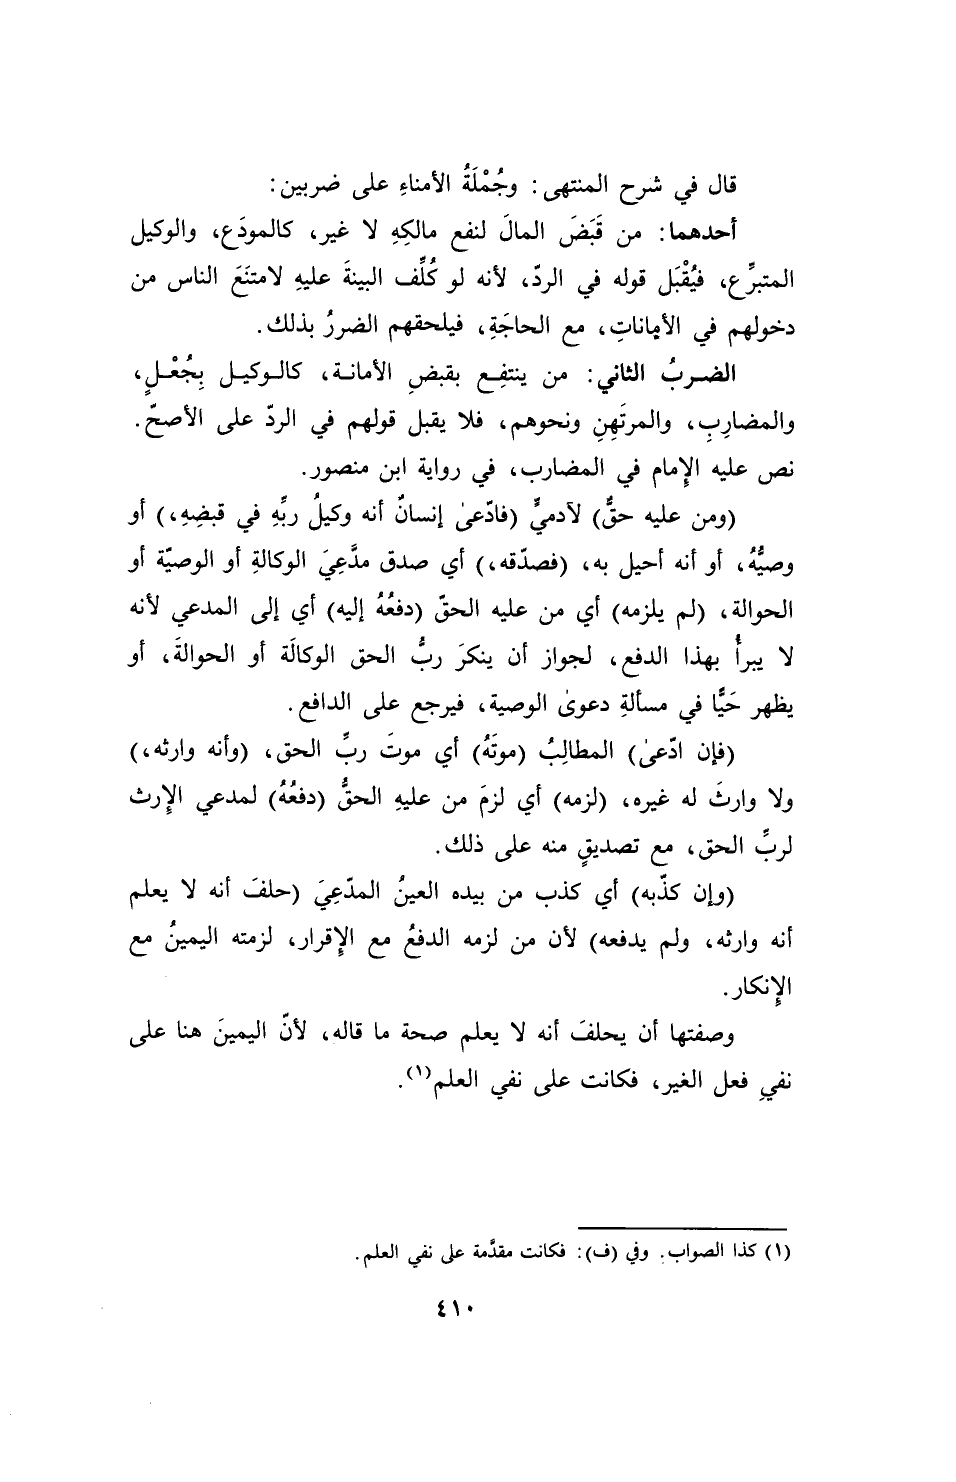 قال في شرح المنتهى: وجُمْلَةُ الأمناءِ على ضربين:
أحدهما: من قَبَضَ المالَ لنفع مالكِهِ لا غير، كالمودَع، والوكيل
المتبرِّع، فيُقْبَل قوله في الردّ، لأنه لو كُلِّف البينةَ عليهِ لامتنَعَ الناس من
دخولهم في الأماناتِ، مع الحاجَةِ، فيلحقهم الضررُ بذلك.
الضربُ الثاني: من ينتفِع بقبضِ الأمانة، كالوكيل بِجُعْلٍ،
والمضارِبِ، والمرتَهِنِ ونحوهم، فلا يقبل قولهم في الردّ على الأصحّ.
نص عليه الإمام في المضارب، في رواية ابن منصور.
(ومن عليه حقٌّ) لآدميٍّ (فادّعىٰ إنسانٌ أنه وكيلُ ربِّهِ في قبضِهِ،) أو
وصيُّهُ، أو أنه أحيل به، (فصدّقه،) أي صدق مدَّعِيَ الوكالةِ أو الوصيّة أو
الحوالة، (لم يلزمه) أي من عليه الحقّ (دفعُهُ إليه) أي إلى المدعي لأنه
لا يبرأُ بهذا الدفع، لجواز أن ينكرَ ربُّ الحق الوكالَة أو الحوالةَ، أو
يظهر حَيًّا في مسألةِ دعوىٰ الوصية، فيرجع على الدافع.
(فإن ادّعىٰ) المطالِبُ (موتَهُ) أي موتَ ربِّ الحق، (وأنه وارثه،)
ولا وارثَ له غيره، (لزمه) أي لزمَ من عليهِ الحقُّ (دفعُهُ) لمدعي الإرث
لربِّ الحق، مع تصديقٍ منه على ذلك.
(وإن كذّبه) أي كذب من بيده العينُ المدّعِيَ (حلفَ أنه لا يعلم
أنه وارثه، ولم يدفعه) لأن من لزمه الدفعُ مع الإقرار، لزمته اليمينُ مع
الإنكار.
وصفتها أن يحلفَ أنه لا يعلم صحة ما قاله، لأنّ اليمينَ هنا على
نفيِ فعل الغير، فكانت على نفي العلم(١).
(١) كذا الصواب. وفي (ف): فكانت مقدَّمة على نفي العلم.
٤١٠